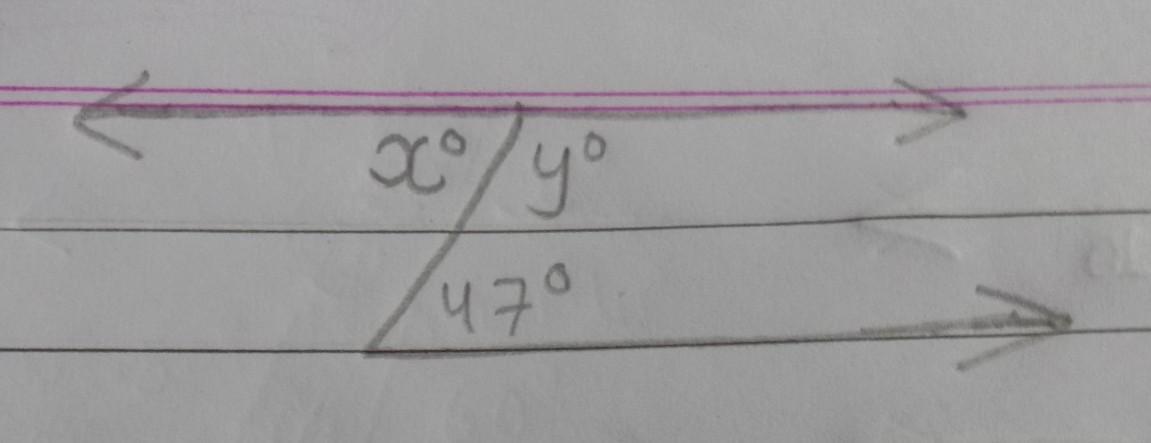 x° y°
47°